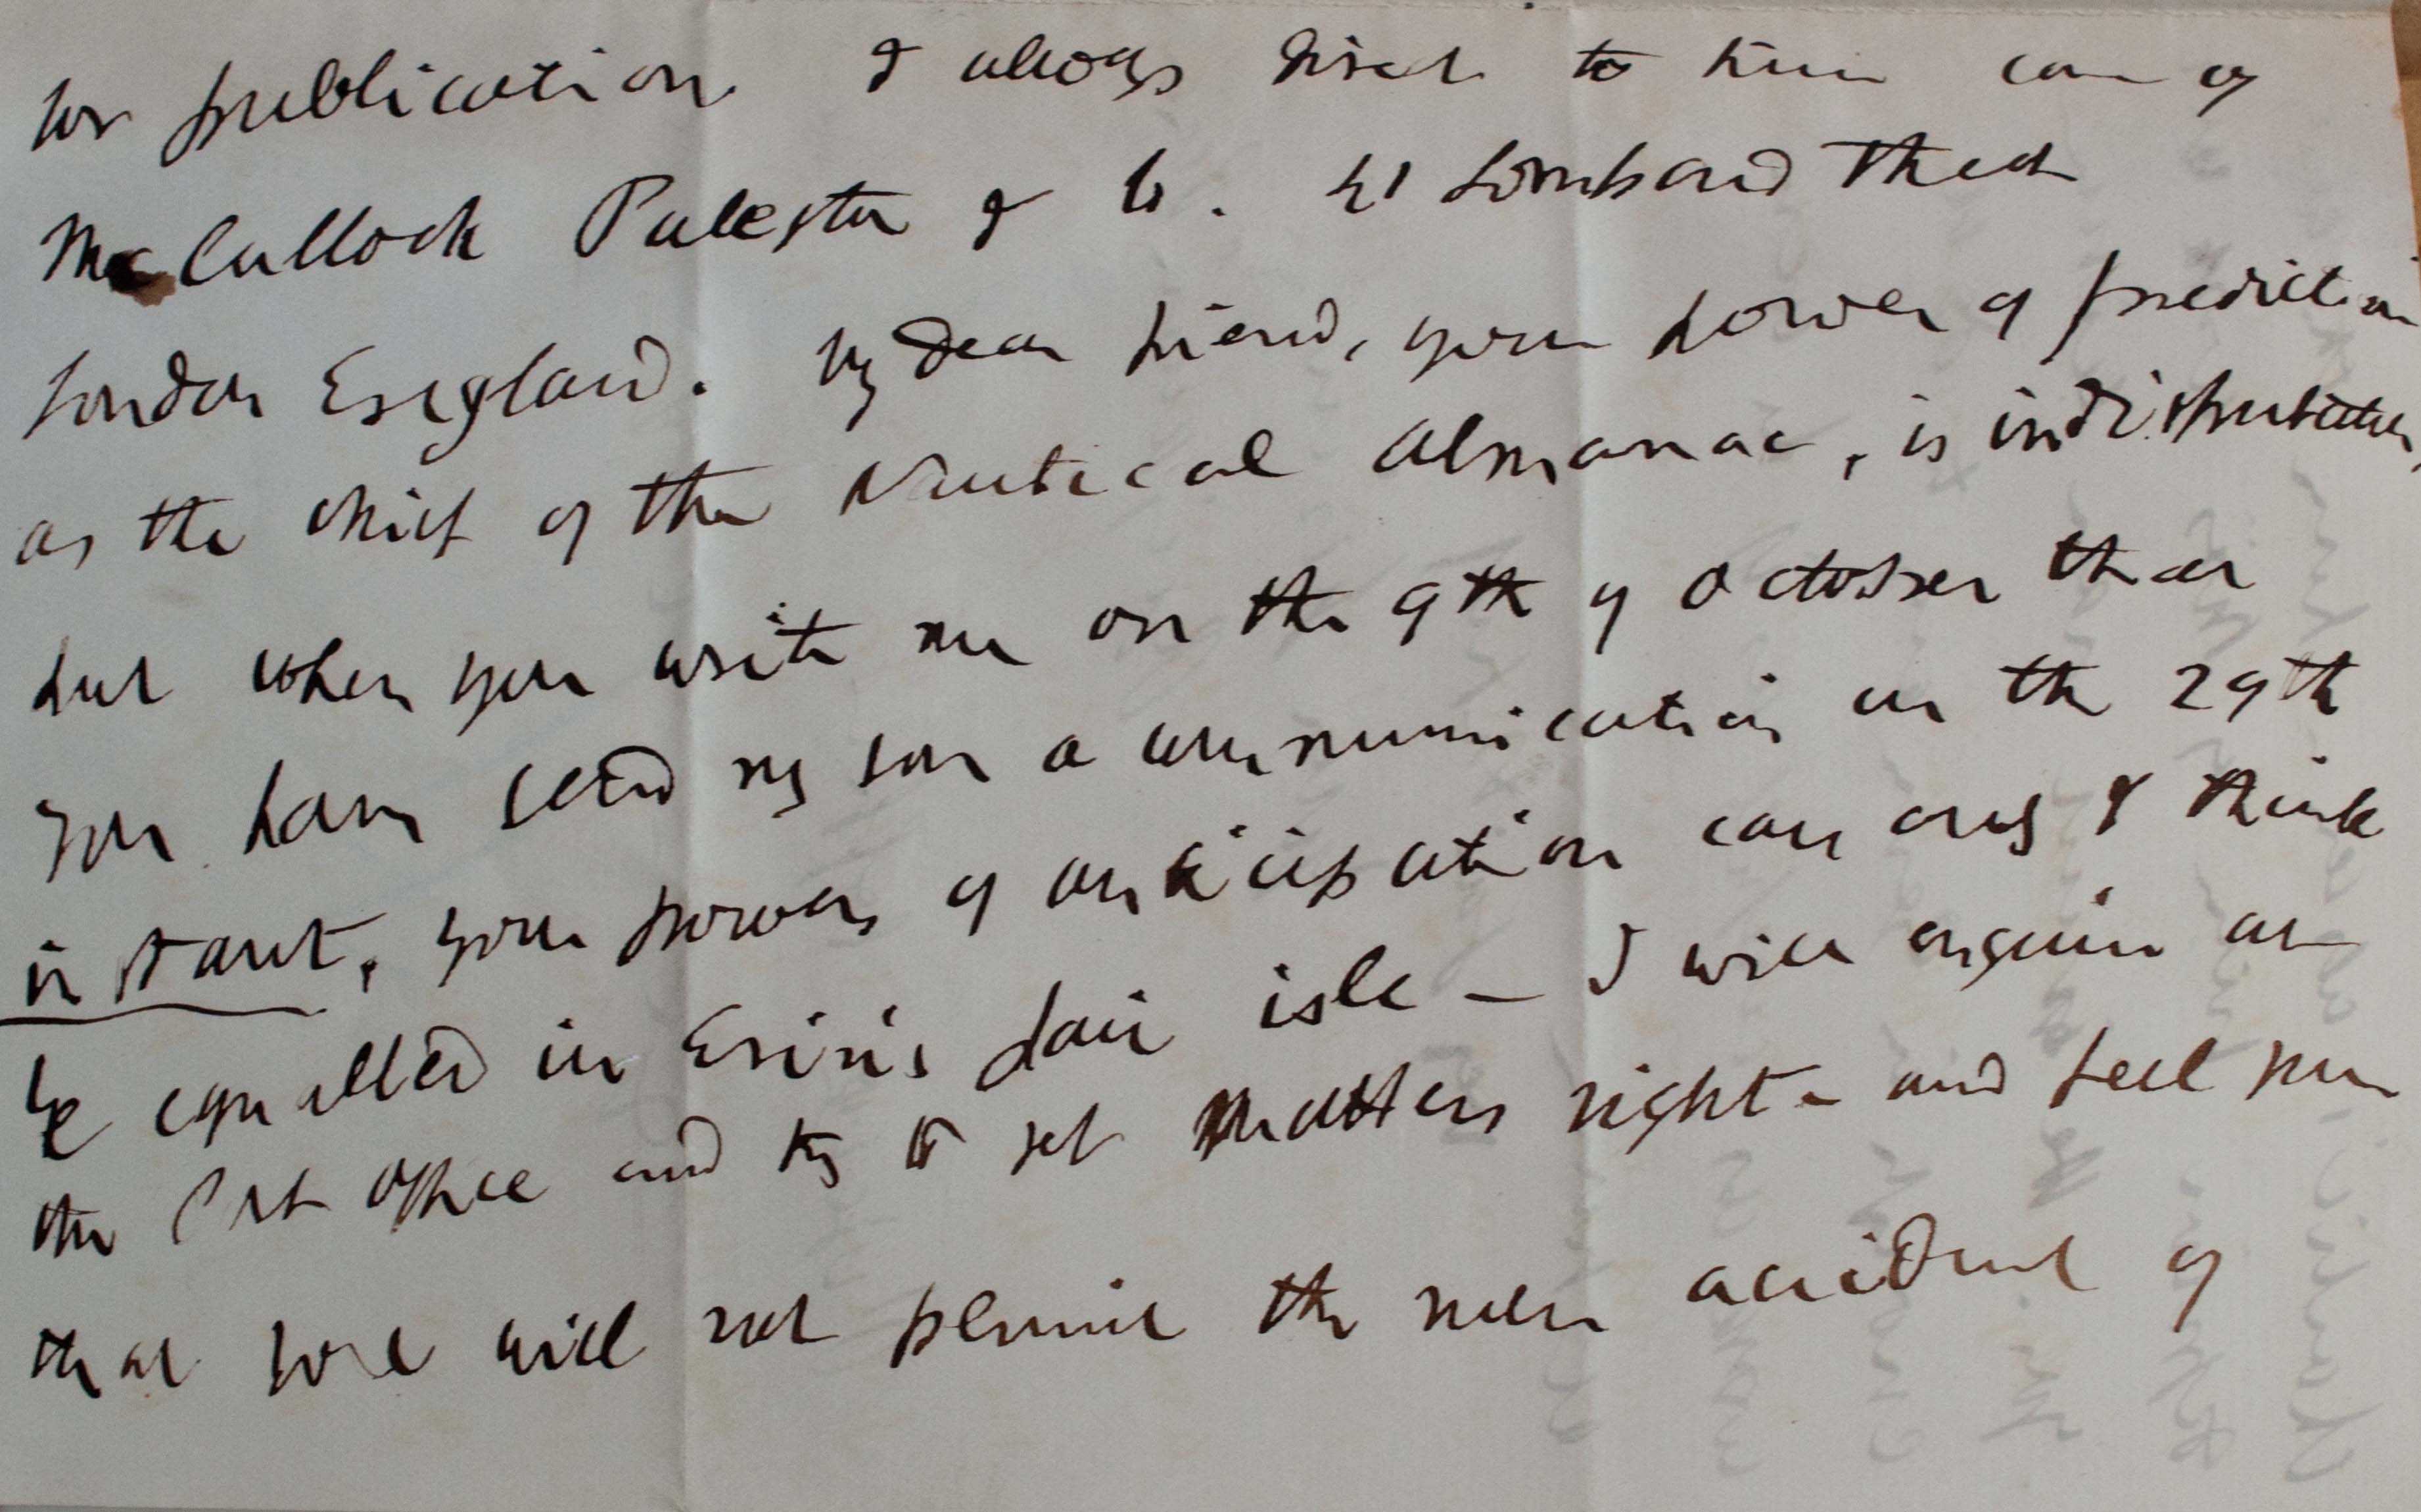 for publication I always direct to him care of
McCulloch Puleston & Co. 41 Lombard Street
London England. My dear friend, your power of prediction
as the chief of the Nautical Almanac, is indisputable,
but when you write me on the 9th of October that
you have send my son a communication on the 29th
instant, your powers of anticipation can only I think
be equalled in Erin's fair isle — I will enquire at
the Post Office and try to set matters right - and feel sure
that you will not permit the mere accident of